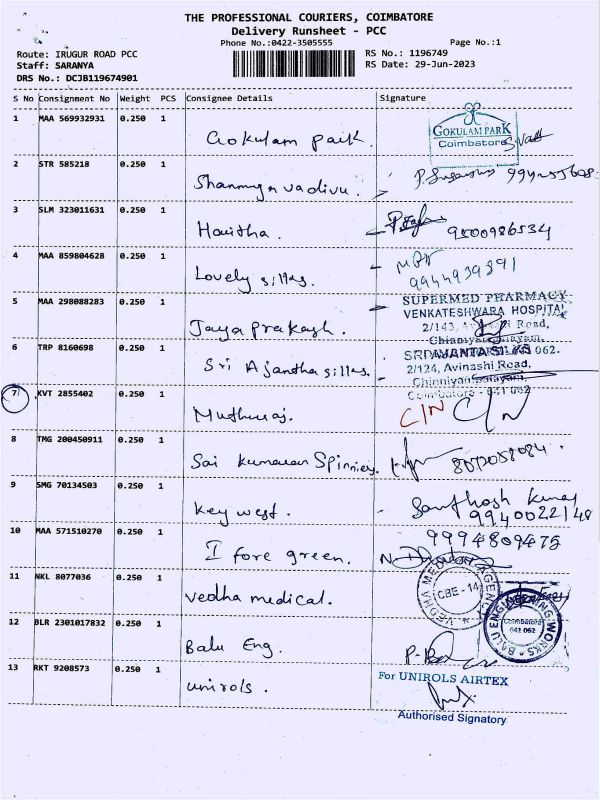 THE PROFESSIONAL COURIERS, COIMBATORE
Delivery Runsheet - PCC
Phone No.:0422-3505555 Page No.:1
Route: IRUGUR ROAD PCC RS No.: 1196749
Staff: SARANYA RS Date: 29-Jun-2023
DRS No.: DCJB119674901
S No Consignment No Weight PCS Consignee Details Signature
1 MAA 569932931 0.250 1 Gokulam park.
GOKULAM PARK
Coimbatore
2 STR 585218 0.250 1 Shanmugavadivu.
3 SLM 323011631 0.250 1 Haritha. 9500986534
4 MAA 859804628 0.250 1 Lovely silks. 9944939891
5 MAA 298088283 0.250 1 Jaya prakash.
SUPERMED PHARMACY
VENKATESHWARA HOSPITAL
2/143, Road,
6 TRP 8160698 0.250 1 Sri Ajantha silks.
2/124, Avinashi Road,
Chinniyampalayam,
Coimbatore - 641 062
7 KVT 2855402 0.250 1 Muthuraj. C/N C/N
8 TMG 200450911 0.250 1 Sai kumaran Spinners.
9 SMG 70134503 0.250 1 Key west. Santhosh kumar
9940022148
10 MAA 571510270 0.250 1 I fore green. 9994809475
11 NKL 8077036 0.250 1 vedha medical.
VEDHA MEDICAL AGENCY
CBE - 14
12 BLR 2301017832 0.250 1 Balu Eng.
BALU ENGINEERING WORKS
Coimbatore
641 062
13 RKT 9208573 0.250 1 unirols.
For UNIROLS AIRTEX
Authorised Signatory